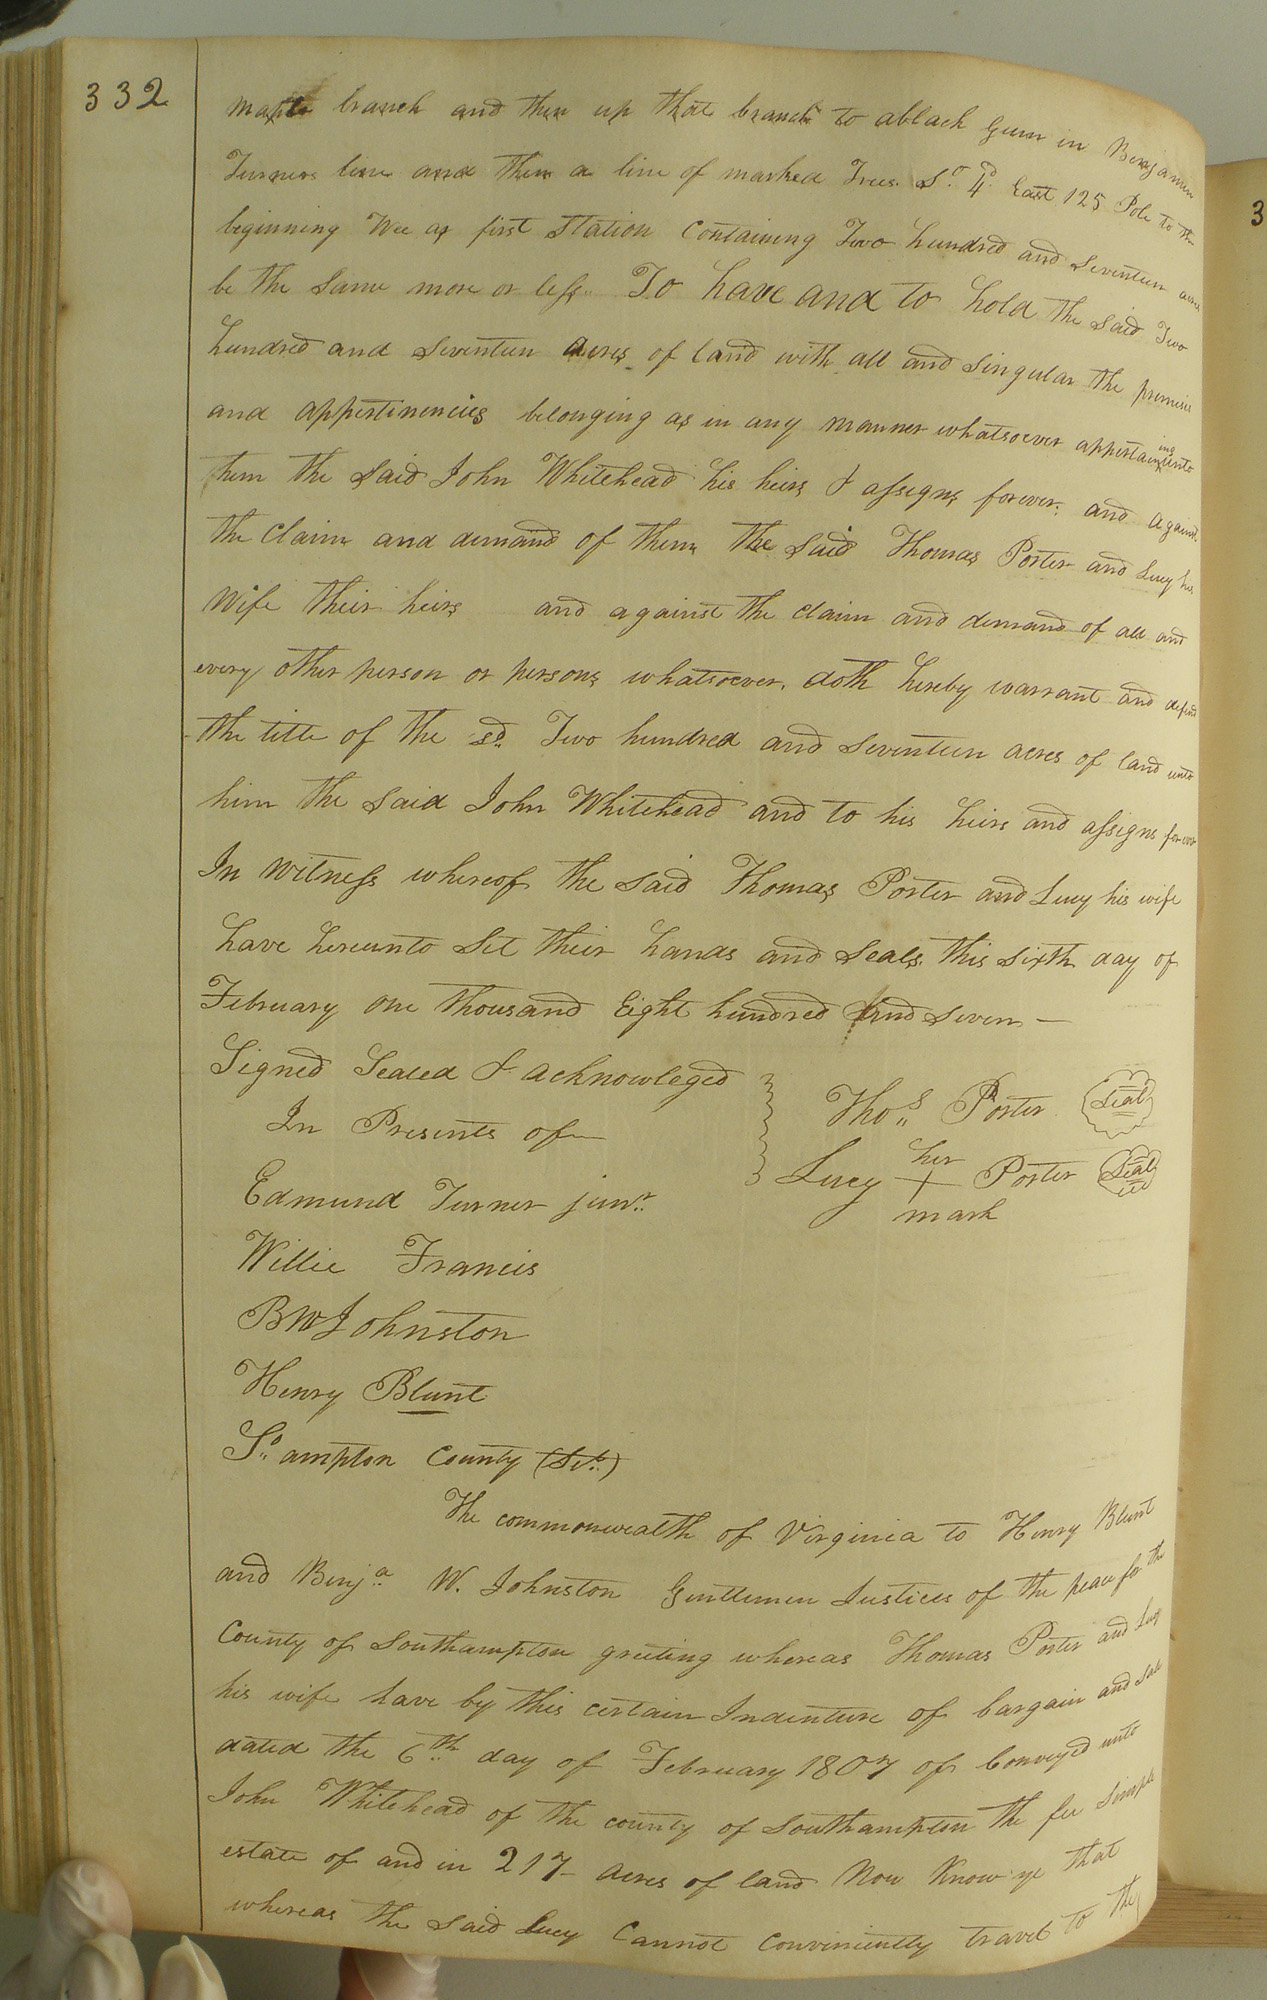 332
maple branch and then up that branch to a black Gum in Benjamin
Turners line and then a line of marked Trees So. 4d East 125 Pole to the
beginning Wee as first Station Containing Two hundred and Seventeen acres
be the Same more or less. To have and to hold the Said Two
hundred and Seventeen Acres of land with all and Singular the premises
and appertinencies belonging as in any manner whatsoever appertaining unto
them the Said John Whitehead his heirs & assigns forever. and against
the Claim and demand of them the Said Thomas Porter and Lucy his
Wife their heirs and against the Claim and demand of all and
every other person or persons whatsoever. doth hereby warrant and defend
the title of the sd. Two hundred and Seventeen acres of land unto
him the Said John Whitehead and to his heirs and assigns forever
In Witness whereof the Said Thomas Porter and Lucy his wife
have hereunto Set their hands and Seals this Sixth day of
February one thousand Eight hundred and Seven —
Signed Sealed & acknowleged
In Presents of
Thos. Porter Seal
her
Lucy + Porter Seal
mark
Edmund Turner junr.
Willie Francis
BW Johnston
Henry Blunt
So. ampton County (Sct.)
The commonwealth of Virginia to Henry Blunt
and Benja. W. Johnston Gentlemen Justices of the peace for the
County of Southampton greeting whereas Thomas Porter and Lucy
his wife have by this certain Indenture of bargain and Sale
dated the 6th day of February 1807 of Conveyed unto
John Whitehead of the county of Southampton the fee Simple
estate of and in 217 acres of land Now Know ye that
whereas the Said Lucy Cannot Conveniently travel to the
3